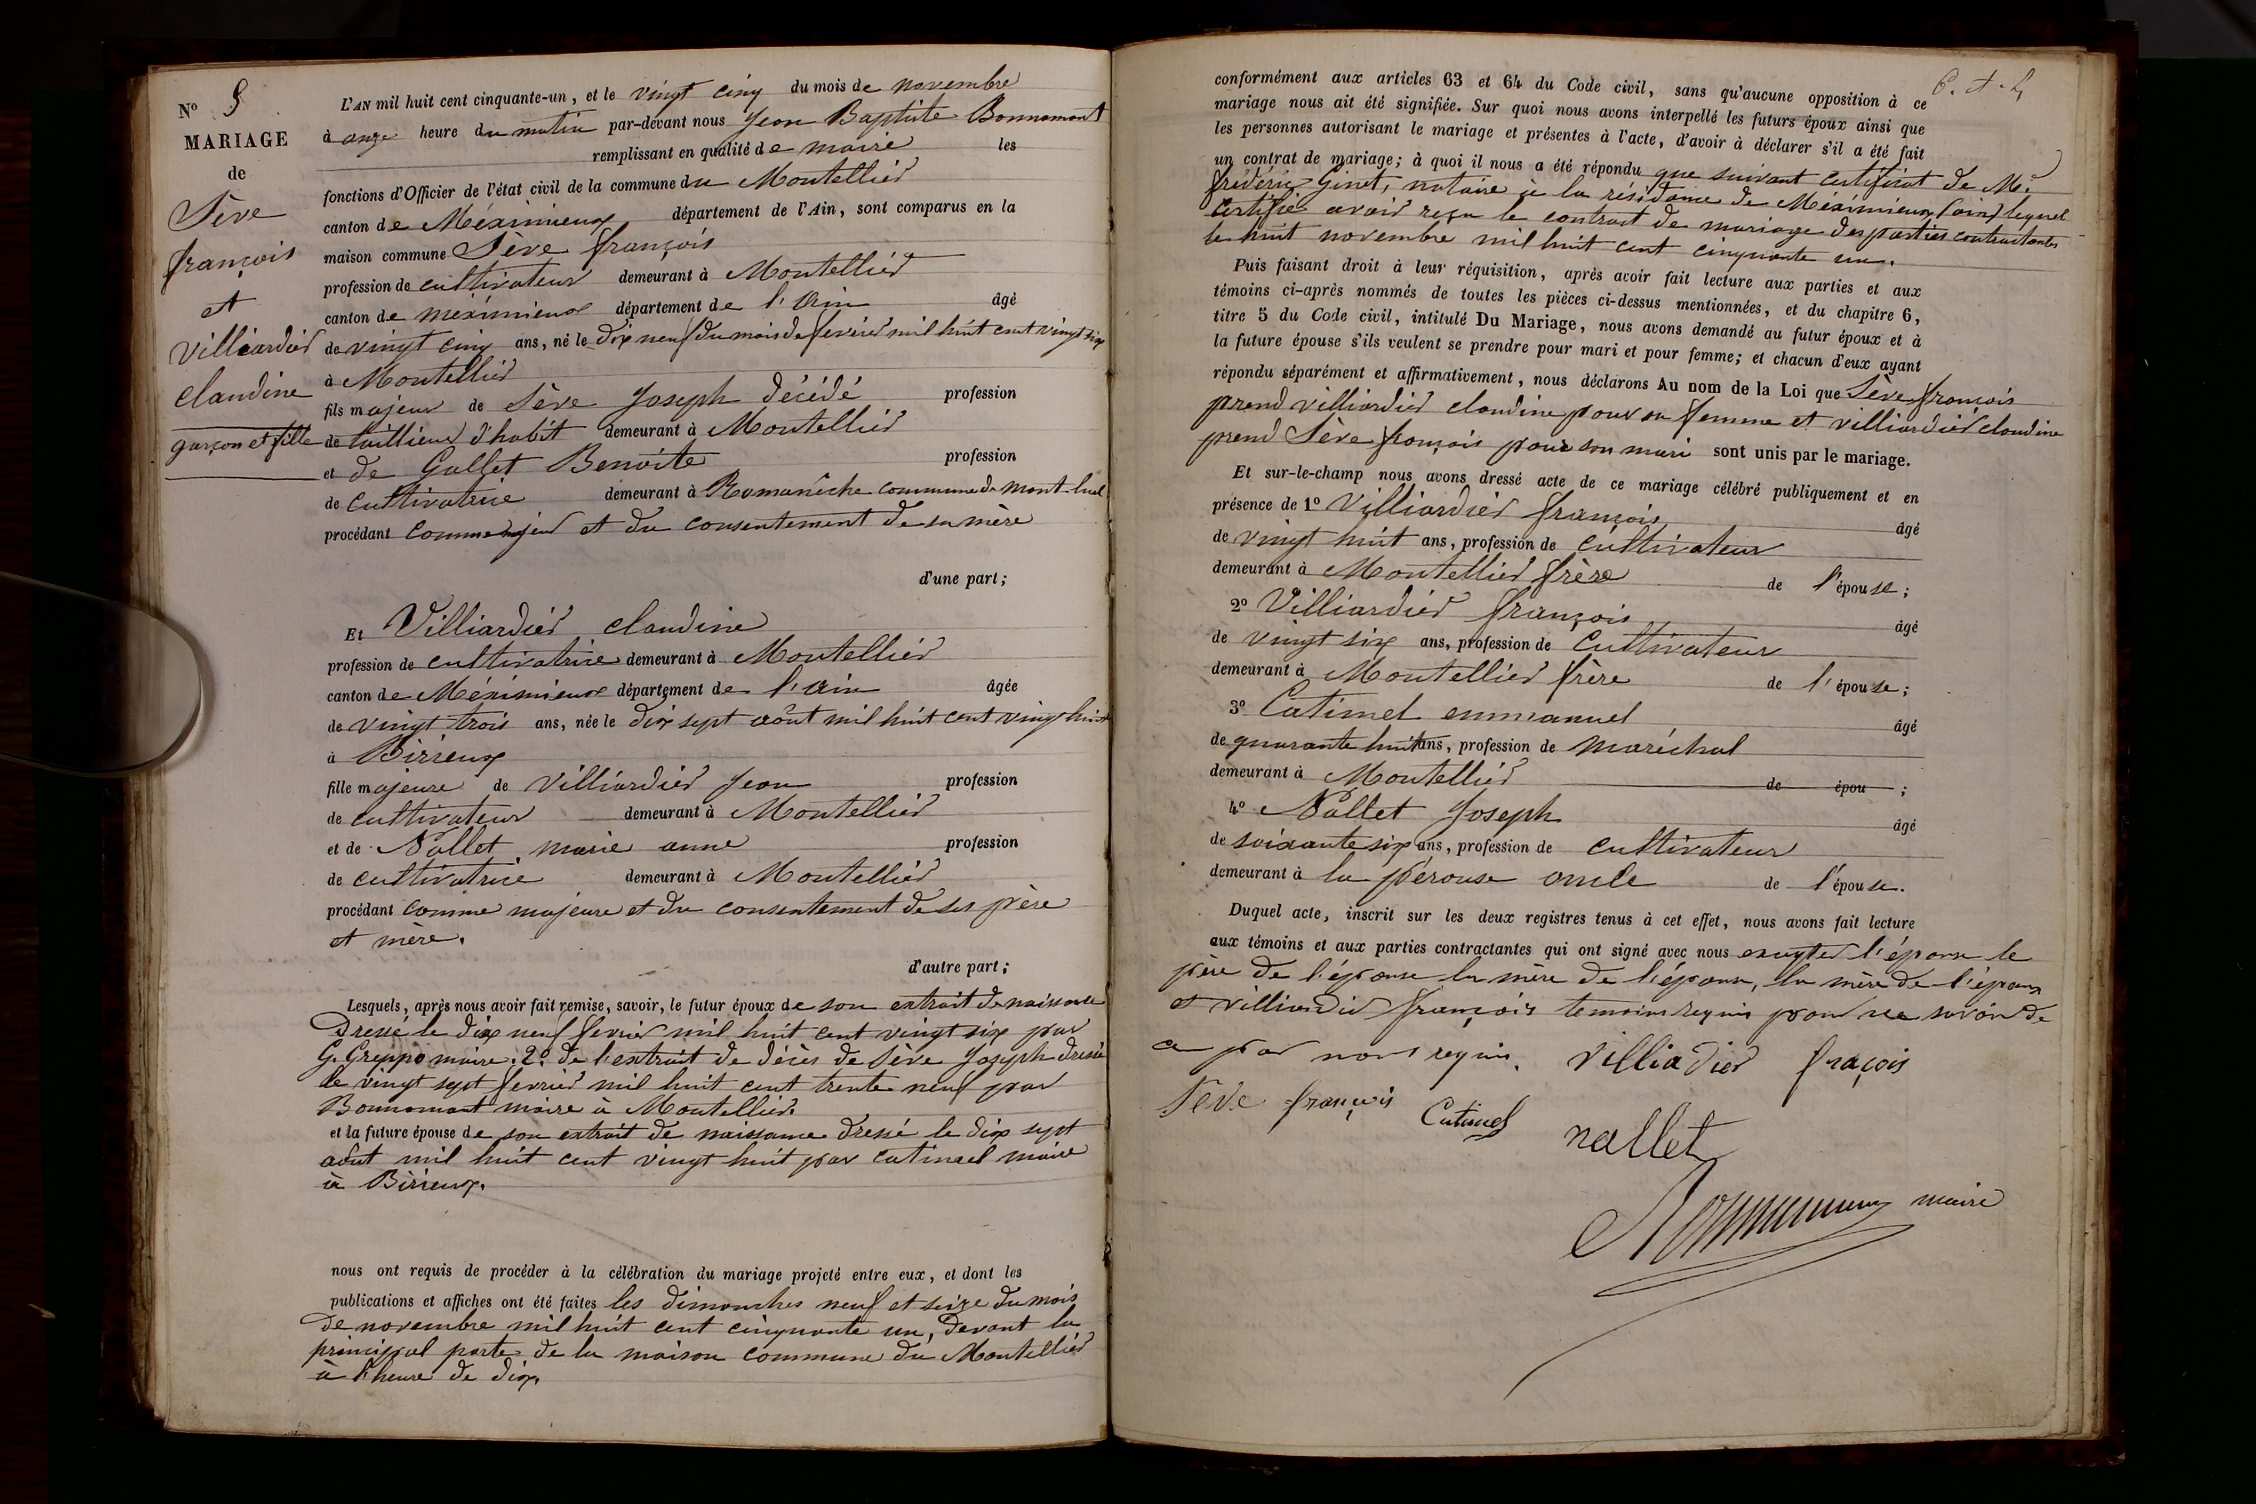 N° 5
MARIAGE
de
Sève
françois
et
Villiardier
claudine
garçon et fille
L'AN mil huit cent cinquante-un, et le vingt cinq du mois de novembre
à onze heure du matin par-devant nous Jean Baptiste Bonnamant
remplissant en qualité de maire les
fonctions d'Officier de l'état civil de la commune du Montellier
canton de Méximieux département de l'Ain, sont comparus en la
maison commune Sève françois
profession de cultivateur demeurant à Montellier
canton de méximieux département de l'ain âgé
de vingt cinq ans, né le dix neuf du mois de fevrier mil huit cent vingt six
à Montellier
fils majeur de Sève Joseph décédé profession
de taillieur d'habit demeurant à Montellier
et de Gallet Benoite profession
de cultivatrice demeurant à Romanèche commune de Mont-luel
procédant comme majeur et du consentement de sa mère
d'une part;
Et Villiardier claudine
profession de cultivatrice demeurant à Montellier
canton de Méximieux département de l'ain âgée
de vingt trois ans, née le dix sept août mil huit cent vingt huit
à Birieux
fille majeure de Villiardier Jean profession
de cultivateur demeurant à Montellier
et de Nallet marie anne profession
de cultivatrice demeurant à Montellier
procédant comme majeure et du consentement de ses père
et mère.
d'autre part;
Lesquels, après nous avoir fait remise, savoir, le futur époux de son extrait de naissance
Dressé le dix neuf fevrier mil huit cent vingt six par
G. Greppo maire. 2° de l'extrait de décès de Sève Joseph dressé
le vingt sept fevrier mil huit cent trente neuf par
Bonnamant maire à Montellier.
et la future épouse de son extrait de naissance dressé le dix sept
aout mil huit cent vingt huit par catimel maire
à Birieux.
nous ont requis de procéder à la célébration du mariage projeté entre eux, et dont les
publications et affiches ont été faites les dimanches neuf et seize du mois
de novembre mil huit cent cinquante un, devant la
principal porte de la maison commune du Montellier
à l'heure de dix.
conformément aux articles 63 et 64 du Code civil, sans qu'aucune opposition à ce
mariage nous ait été signifiée. Sur quoi nous avons interpellé les futurs époux ainsi que
les personnes autorisant le mariage et présentes à l'acte, d'avoir à déclarer s'il a été fait
un contrat de mariage; à quoi il nous a été répondu que suivant certificat de Me
frédéric Ginet, notaire à la résidance de Méximieux (ain) lequel
certifie avoir reçu le contract de mariage des parties contractantes
le huit novembre mil huit cent cinquante un.
Puis faisant droit à leur réquisition, après avoir fait lecture aux parties et aux
témoins ci-après nommés de toutes les pièces ci-dessus mentionnées, et du chapitre 6,
titre 5 du Code civil, intitulé Du Mariage, nous avons demandé au futur époux et à
la future épouse s'ils veulent se prendre pour mari et pour femme; et chacun d'eux ayant
répondu séparément et affirmativement, nous déclarons Au nom de la Loi que Sève françois
prend villiardier claudine pour sa femme et villiardier claudine
prend Sève françois pour son mari sont unis par le mariage.
Et sur-le-champ nous avons dressé acte de ce mariage célébré publiquement et en
présence de 1° Villiardier françois âgé
de vingt huit ans, profession de cultivateur
demeurant à Montellier frère de l'épouse;
2° Villiardier françois âgé
de vingt six ans, profession de cultivateur
demeurant à Montellier frère de l'épouse;
3° Catimel emmanuel âgé
de quarante huit ans, profession de maréchal
demeurant à Montellier de épou ;
4° Nallet Joseph âgé
de soixante six ans, profession de cultivateur
demeurant à la pérouse oncle de l'épouse.
Duquel acte, inscrit sur les deux registres tenus à cet effet, nous avons fait lecture
aux témoins et aux parties contractantes qui ont signé avec nous excepter l'épouse le
père de l'épouse la mère de l'épouse, la mère de l'époux
et villiardier françois temoins requis pour ne savoir de
ce par nous requis. Villiadier fraçois
Sève françois Catimel nallet
maire